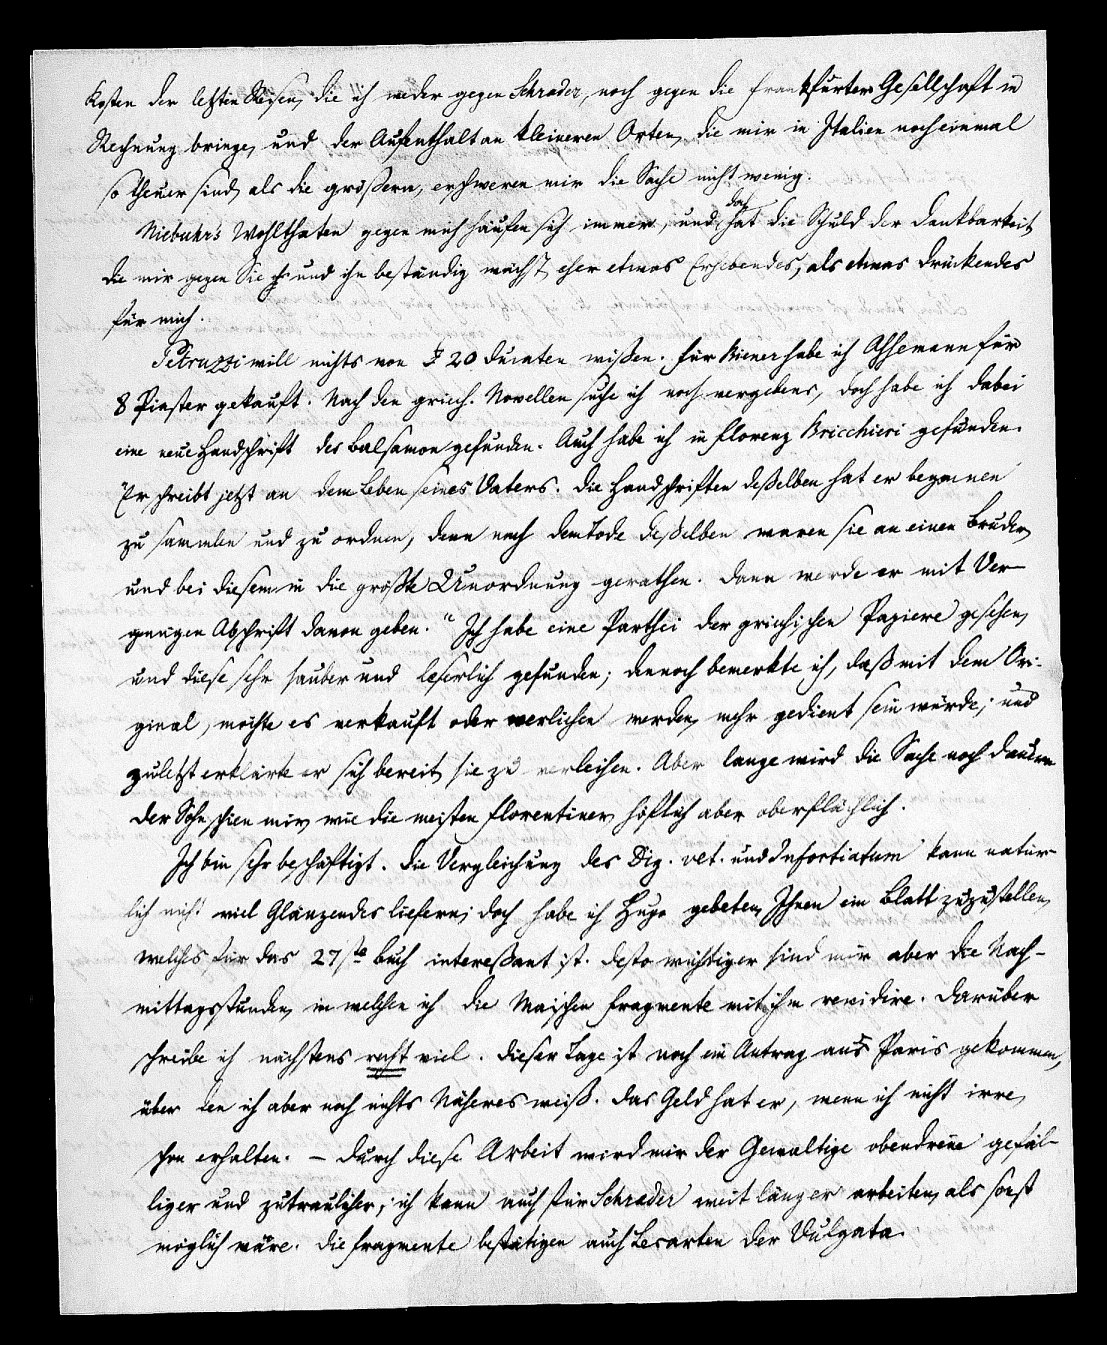 Kosten der letzten Reisen, die ich weder gegen Schrader, noch gegen die Frankfurter Gesellschaft in
Rechnung bringe, und der Aufenthalt an kleineren Orten, die mir in Italien noch einmal
so theuer sind, als die größern, erschweren mir die Sache nicht wenig.
Niebuhr's Wohlthaten gegen mich häufen sich immer, und doch hat die Schuld der Dankbarkeit,
die mir gegen Sie und ihn beständig wächst, eher etwas Erhebendes, als etwas Drückendes
für mich.
Petruzzi will nichts von 20 Ducaten wißen. Für Biener habe ich Assemann für
8 Piaster gekauft. Nach den griech. Novellen suche ich noch vergebens, doch habe ich dabei
eine neue Handschrift des Balsamon gefunden. Auch habe ich in Florenz Bricchieri gefunden.
"Er schreibt jetzt an dem Leben seines Vaters. Die Handschriften deßelben hat er begonnen
zu sammlen und zu ordnen, denn nach dem Tode deßelben waren sie an einen Bruder,
und bei diesem in die größte Unordnung gerathen. Dann werde er mit Ver-
gnügen Abschrift davon geben." Ich habe eine Parthei der griechischen Papiere gesehen,
und diese sehr sauber und leserlich gefunden; dennoch bemerkte ich, daß mit dem Ori-
ginal, möchte es verkauft oder verliehen werden, mehr gedient sein würde; und
zuletzt erklärte er sich bereit, sie zu verleihen. Aber lange wird die Sache noch dauern
der Sohn schien mir, wie die meisten Florentiner, höflich aber oberflächlich.
Ich bin sehr beschäftigt. Die Vergleichung des Dig. vet. und Infortiatum kann natür-
lich nicht viel Glänzendes liefern; doch habe ich Hugo gebeten, Ihnen ein Blatt zuzustellen,
welches für das 27ste Buch intereßant ist. Desto wichtiger sind mir aber die Nach-
mittagsstunden, in welchen ich die Maischen Fragmente mit ihm revidire. Darüber
schreibe ich nächstens recht viel. Dieser Tage ist noch ein Antrag aus Paris gekommen,
über den ich aber noch nichts Näheres weiß. Das Geld hat er, wenn ich nicht irre,
schon erhalten. – Durch diese Arbeit wird mir der Gewaltige obendrein gefäl-
liger und zutraulicher; ich kann auch für Schrader weit länger arbeiten, als sonst
möglich wäre. Die Fragmente bestätigen auch Lesarten der Vulgata.